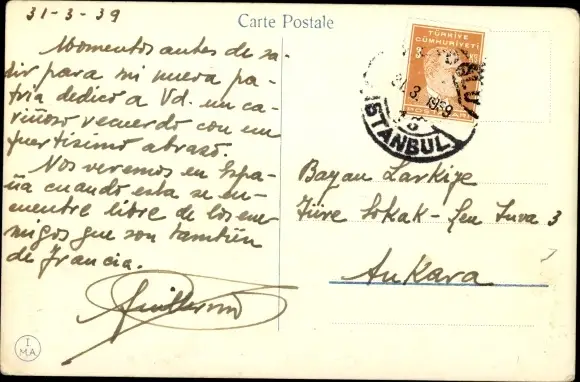 31-3-39
Carte Postale
Momentos antes de sa-
dir para mi nueva pa-
tria dedico a Vd. un ca-
riñoso recuerdo con un
fuertisimo abrazo.
Nos veremos en Espa-
ña cuando esta se en-
cuentre libre de los ene-
migos que son tambien
de Francia.
Guillermo
TÜRKİYE
CÜMHURİYETİ
3
31.3.1939
8
ISTANBUL
Bayan Larkipe
Türe Sokak - Şen Yuva 3
Ankara
I.
M.A